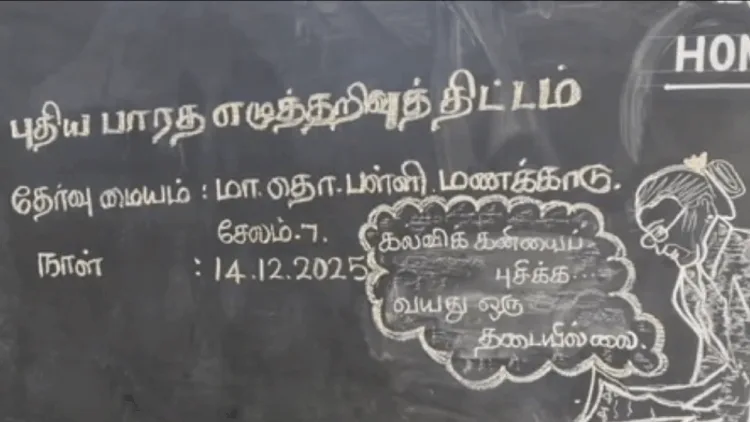 HOM
புதிய பாரத எழுத்தறிவுத் திட்டம்
தேர்வு மையம் : மா.தொ.பள்ளி. மணக்காடு.
சேலம்.7.
நாள் : 14.12.2025
கல்விக் கனியைப்
புசிக்க...
வயது ஒரு
தடையில்லை.